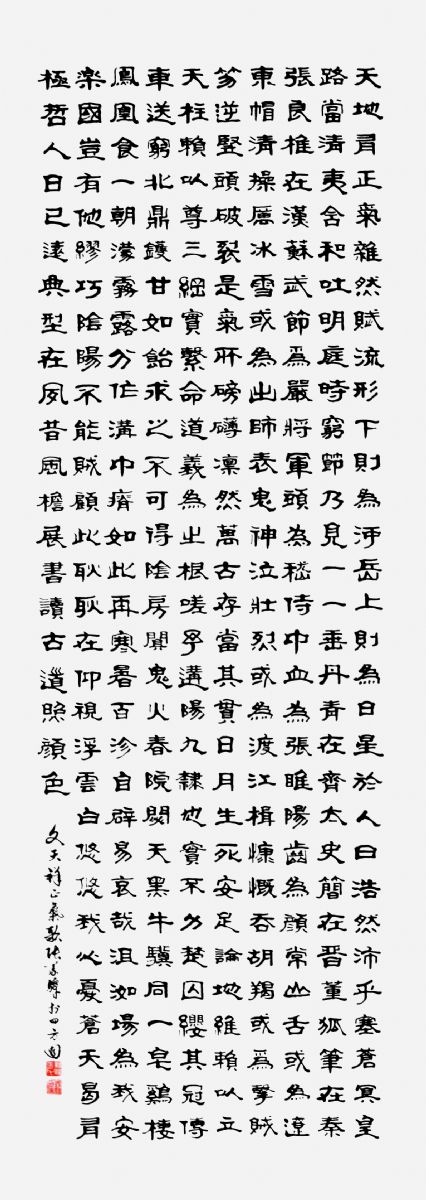 天地有正氣雜然賦流形下則為河岳上則為日星於人曰浩然沛乎塞蒼冥皇
路當清夷含和吐明庭時窮節乃見一一垂丹青在齊太史簡在晉董狐筆在秦
張良椎在漢蘇武節為嚴將軍頭為嵇侍中血為張睢陽齒為顏常山舌或為遼
東帽清操厲冰雪或為出師表鬼神泣壯烈或為渡江楫慷慨吞胡羯或為擊賊
笏逆豎頭破裂是氣所磅礴凜然萬古存當其實日月生死安足論地維賴以立
天柱賴以尊三綱實繫命道義為之根嗟予遘陽九隸也實不力楚囚纓其冠傳
車送窮北鼎鑊甘如飴求之不可得陰房闃鬼火春院閟天黑牛驥同一皂鷄棲
鳳凰食一朝濛霧露分作溝中瘠如此再寒暑百沴自辟易哀哉沮洳場為我安
楽國豈有他繆巧陰陽不能賊顧此耿耿在仰視浮雲白悠悠我心憂蒼天曷有
極哲人日已遠典型在夙昔風檐展書讀古道照顏色
文天祥正氣歌